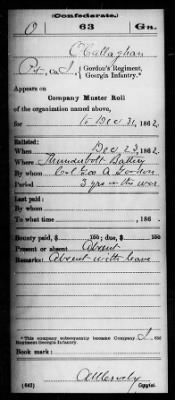 (Confederate.)
O 63 Ga.
O'Callaghan
Pvt., Co. I, Gordon's Regiment, Georgia Infantry.*
Appears on
Company Muster Roll
of the organization named above,
for to Dec 31, 1862.
Enlisted:
When Dec 23, 1862.
Where Thunderbolt Battery
By whom Col Geo A Gordon
Period 3 yrs or the war
Last paid:
By whom
To what time , 186 .
Bounty paid, $ 100; due, $ 100
Present or absent Absent
Remarks: Absent with leave
*This company subsequently became Company I, 63d
Regiment Georgia Infantry.
Book mark:
(642) Copyist.